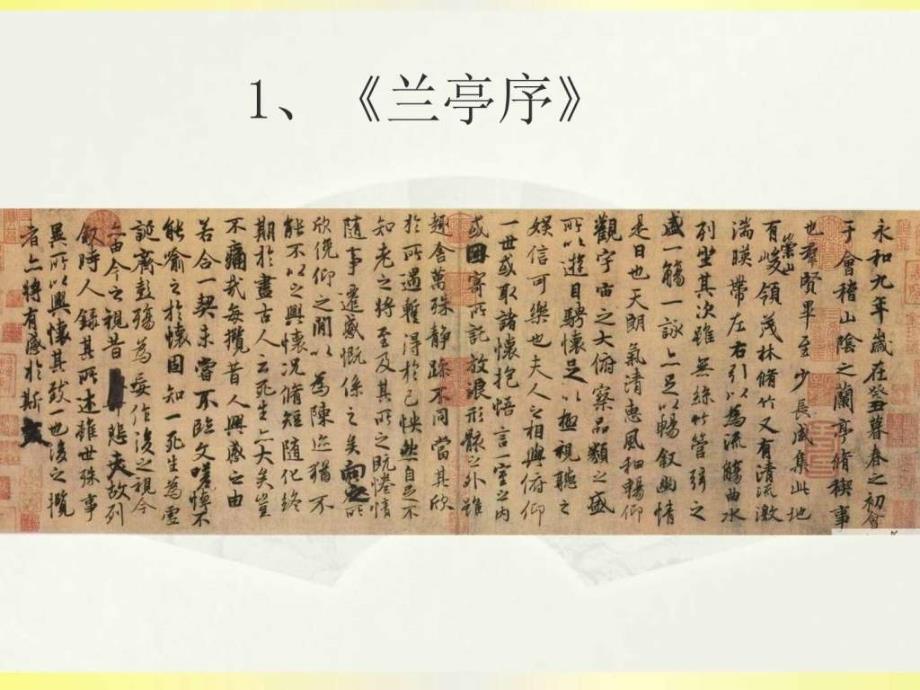 1、《兰亭序》
永和九年歲在癸丑暮春之初會
于會稽山陰之蘭亭脩稧事
也羣賢畢至少長咸集此地
有崇山峻領茂林脩竹又有清流激
湍暎帶左右引以為流觴曲水
列坐其次雖無絲竹管弦之
盛一觴一詠亦足以暢叙幽情
是日也天朗氣清惠風和暢仰
觀宇宙之大俯察品類之盛
所以遊目騁懷足以極視聽之
娛信可樂也夫人之相與俯仰
一世或取諸懷抱悟言一室之內
或因寄所託放浪形骸之外雖
趣舍萬殊静躁不同當其欣
於所遇暫得於己怏然自足不
知老之將至及其所之既惓情
隨事遷感慨係之矣向之所
欣俛仰之閒以為陳迹猶不
能不以之興懷況脩短隨化終
期於盡古人云死生亦大矣豈
不痛哉每攬昔人興感之由
若合一契未嘗不臨文嗟悼不
能喻之於懷固知一死生為虛
誕齊彭殤為妄作後之視今
亦由今之視昔悲夫故列
叙時人錄其所述雖世殊事
異所以興懷其致一也後之攬
者亦將有感於斯文